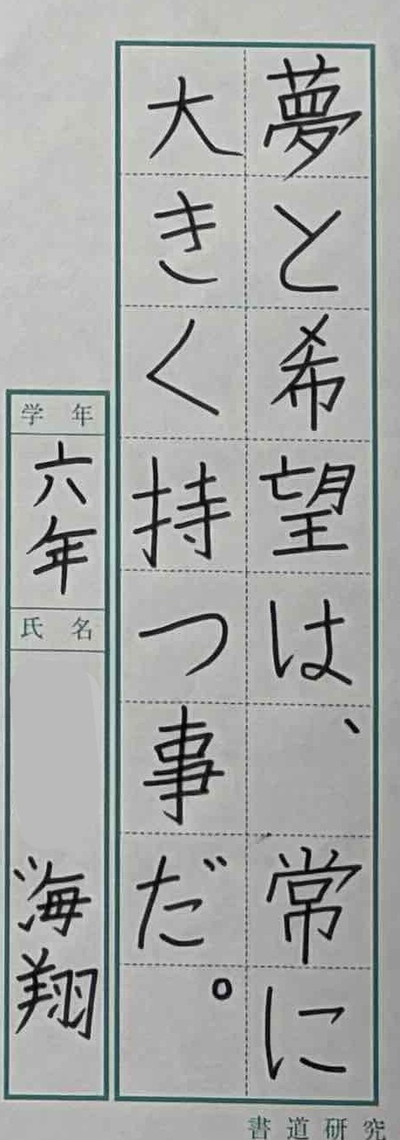 夢と希望は、常に
大きく持つ事だ。
学年
六年
氏名
海翔
書道研究